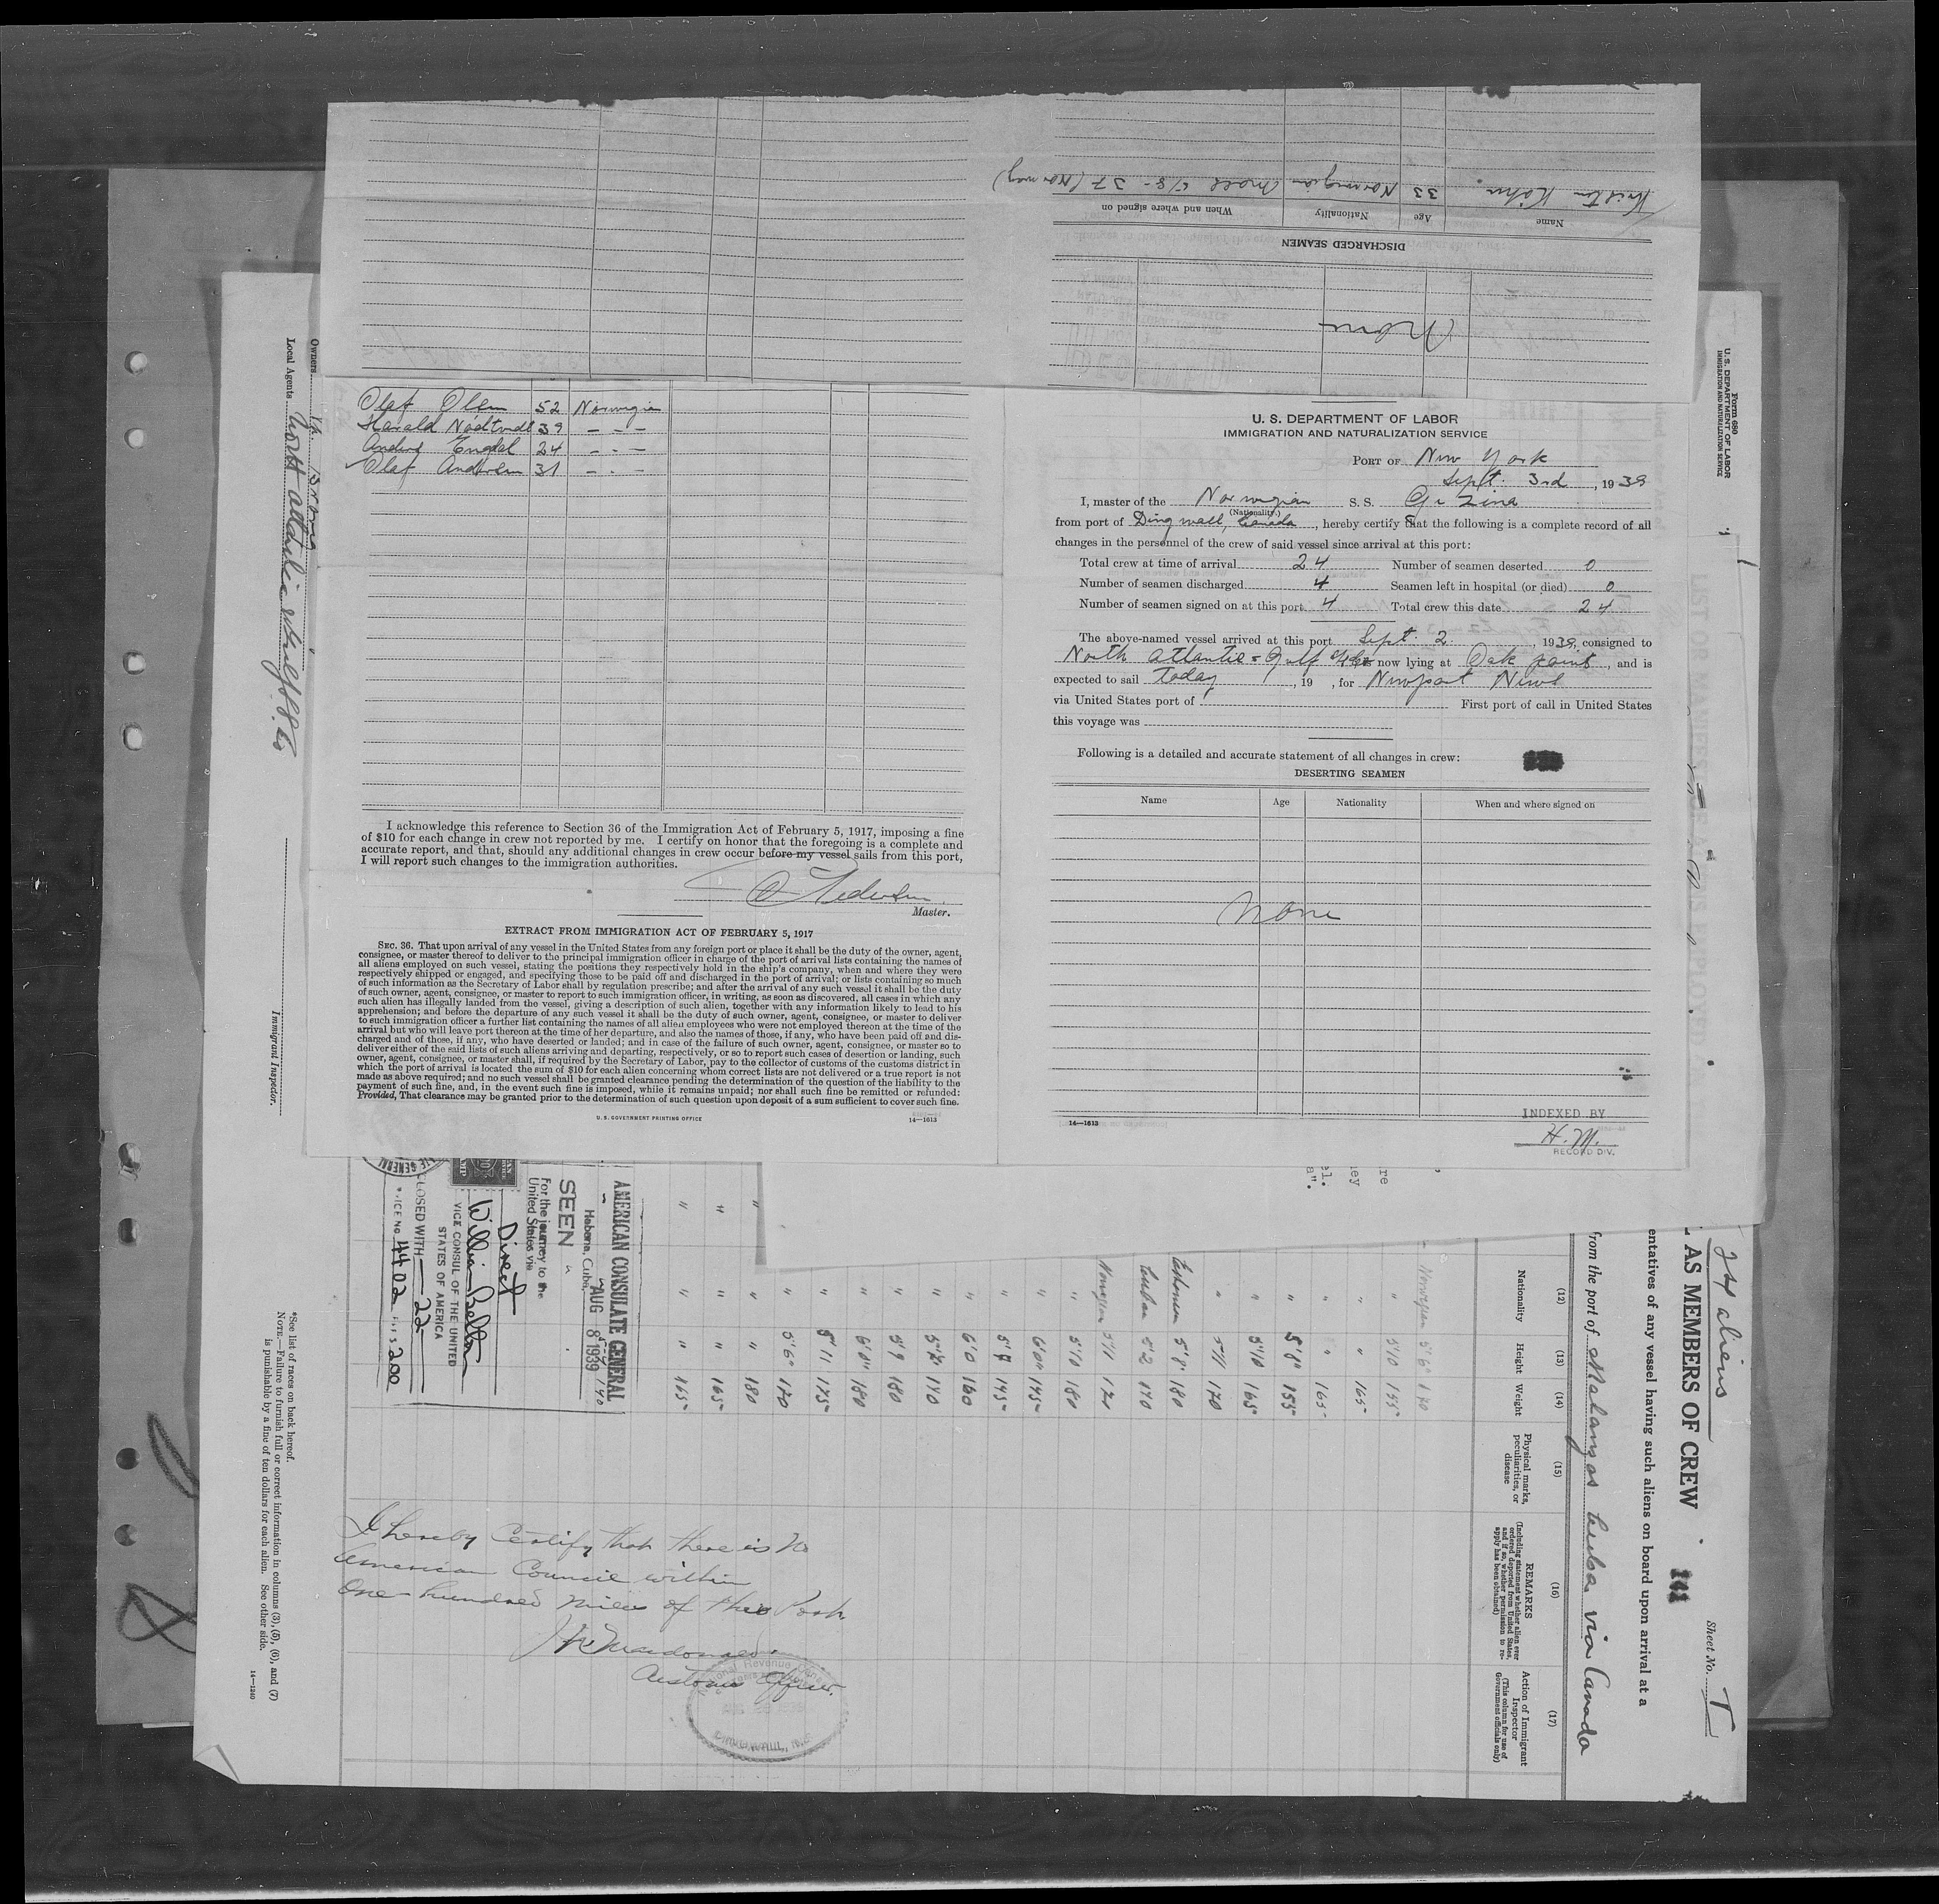 Kristen
33
Norwegian
Name
Age
Nationality
When and where signed on
DISCHARGED SEAMEN
None
Olaf Olsen 52 Norwegian
Harald 39 - - -
Anders Engdal 24 - - -
Olaf Andresen 31 - - -
I acknowledge this reference to Section 36 of the Immigration Act of February 5, 1917, imposing a fine
of $10 for each change in crew not reported by me. I certify on honor that the foregoing is a complete and
accurate report, and that, should any additional changes in crew occur before my vessel sails from this port,
I will report such changes to the immigration authorities.
Master.
EXTRACT FROM IMMIGRATION ACT OF FEBRUARY 5, 1917
SEC. 36. That upon arrival of any vessel in the United States from any foreign port or place it shall be the duty of the owner, agent,
consignee, or master thereof to deliver to the principal immigration officer in charge of the port of arrival lists containing the names of
all aliens employed on such vessel, stating the positions they respectively hold in the ship's company, when and where they were
respectively shipped or engaged, and specifying those to be paid off and discharged in the port of arrival; or lists containing so much
of such information as the Secretary of Labor shall by regulation prescribe; and after the arrival of any such vessel it shall be the duty
of such owner, agent, consignee, or master to report to such immigration officer, in writing, as soon as discovered, all cases in which any
such alien has illegally landed from the vessel, giving a description of such alien, together with any information likely to lead to his
apprehension; and before the departure of any such vessel it shall be the duty of such owner, agent, consignee, or master to deliver
to such immigration officer a further list containing the names of all alien employees who were not employed thereon at the time of the
arrival but who will leave port thereon at the time of her departure, and also the names of those, if any, who have been paid off and dis-
charged and of those, if any, who have deserted or landed; and in case of the failure of such owner, agent, consignee, or master so to
deliver either of the said lists of such aliens arriving and departing, respectively, or so to report such cases of desertion or landing, such
owner, agent, consignee, or master shall, if required by the Secretary of Labor, pay to the collector of customs of the customs district in
which the port of arrival is located the sum of $10 for each alien concerning whom correct lists are not delivered or a true report is not
made as above required; and no such vessel shall be granted clearance pending the determination of the question of the liability to the
payment of such fine, and, in the event such fine is imposed, while it remains unpaid; nor shall such fine be remitted or refunded:
Provided, That clearance may be granted prior to the determination of such question upon deposit of a sum sufficient to cover such fine.
U. S. GOVERNMENT PRINTING OFFICE
14—1613
U. S. DEPARTMENT OF LABOR
IMMIGRATION AND NATURALIZATION SERVICE
PORT OF New York
Sept. 3rd, 1939
I, master of the Norwegian S. S. Gezina
(Nationality.)
from port of Dingwall, Canada, hereby certify that the following is a complete record of all
changes in the personnel of the crew of said vessel since arrival at this port:
Total crew at time of arrival 24 Number of seamen deserted 0
Number of seamen discharged 4 Seamen left in hospital (or died) 0
Number of seamen signed on at this port 4 Total crew this date 24
The above-named vessel arrived at this port Sept. 2, 1939, consigned to
North Atlantic & Gulf now lying at Oak point, and is
expected to sail today, 19 , for Newport News
via United States port of First port of call in United States
this voyage was
Following is a detailed and accurate statement of all changes in crew:
DESERTING SEAMEN
Name Age Nationality When and where signed on
None
14—1613
INDEXED BY
H. M.
RECORD DIV.
Owners
Local Agents North Atlantic & Gulf S.S. Co
Immigrant Inspector.
*See list of races on back hereof.
NOTE.—Failure to furnish full or correct information in columns (3), (5), (6), and (7)
is punishable by a fine of ten dollars for each alien. See other side.
14—1240
Form 680
U. S. DEPARTMENT OF LABOR
IMMIGRATION AND NATURALIZATION SERVICE
24 aliens
Sheet No.
AS MEMBERS OF CREW
entatives of any vessel having such aliens on board upon arrival at a
from the port of Matanzas Cuba via Canada
(12) (13) (14) (15) (16) (17)
Nationality
Height
Weight
Physical marks, peculiarities, or disease
REMARKS
(Including statement whether alien ever ordered deported from United States, and if so, whether permission to reapply has been obtained)
Action of Immigrant Inspector
(This column for use of Government officials only)
Norwegian 5'6" 140
" 5'10 155
" " 165
" " 165
" 5'8" 155
" 5'10 165
" 5'11 170
Esthonian 5'8" 180
Cuban 5'2 140
Norwegian 5'11 172
" 5'10 180
" 6'0" 175
" 6'0 160
" 5'9 180
" 6'0" 180
" 5'11 175
" 5'6" 170
" " 180
" " 165
" " 165
AMERICAN CONSULATE GENERAL
Habana, Cuba, AUG 8 1939
SEEN
For the journey to the
United States via
Direct
VICE CONSUL OF THE UNITED
STATES OF AMERICA
CLOSED WITH 22
4402
200
I hereby Certify that there is no
American Council within
one hundred miles of this Port
Customs Officer.